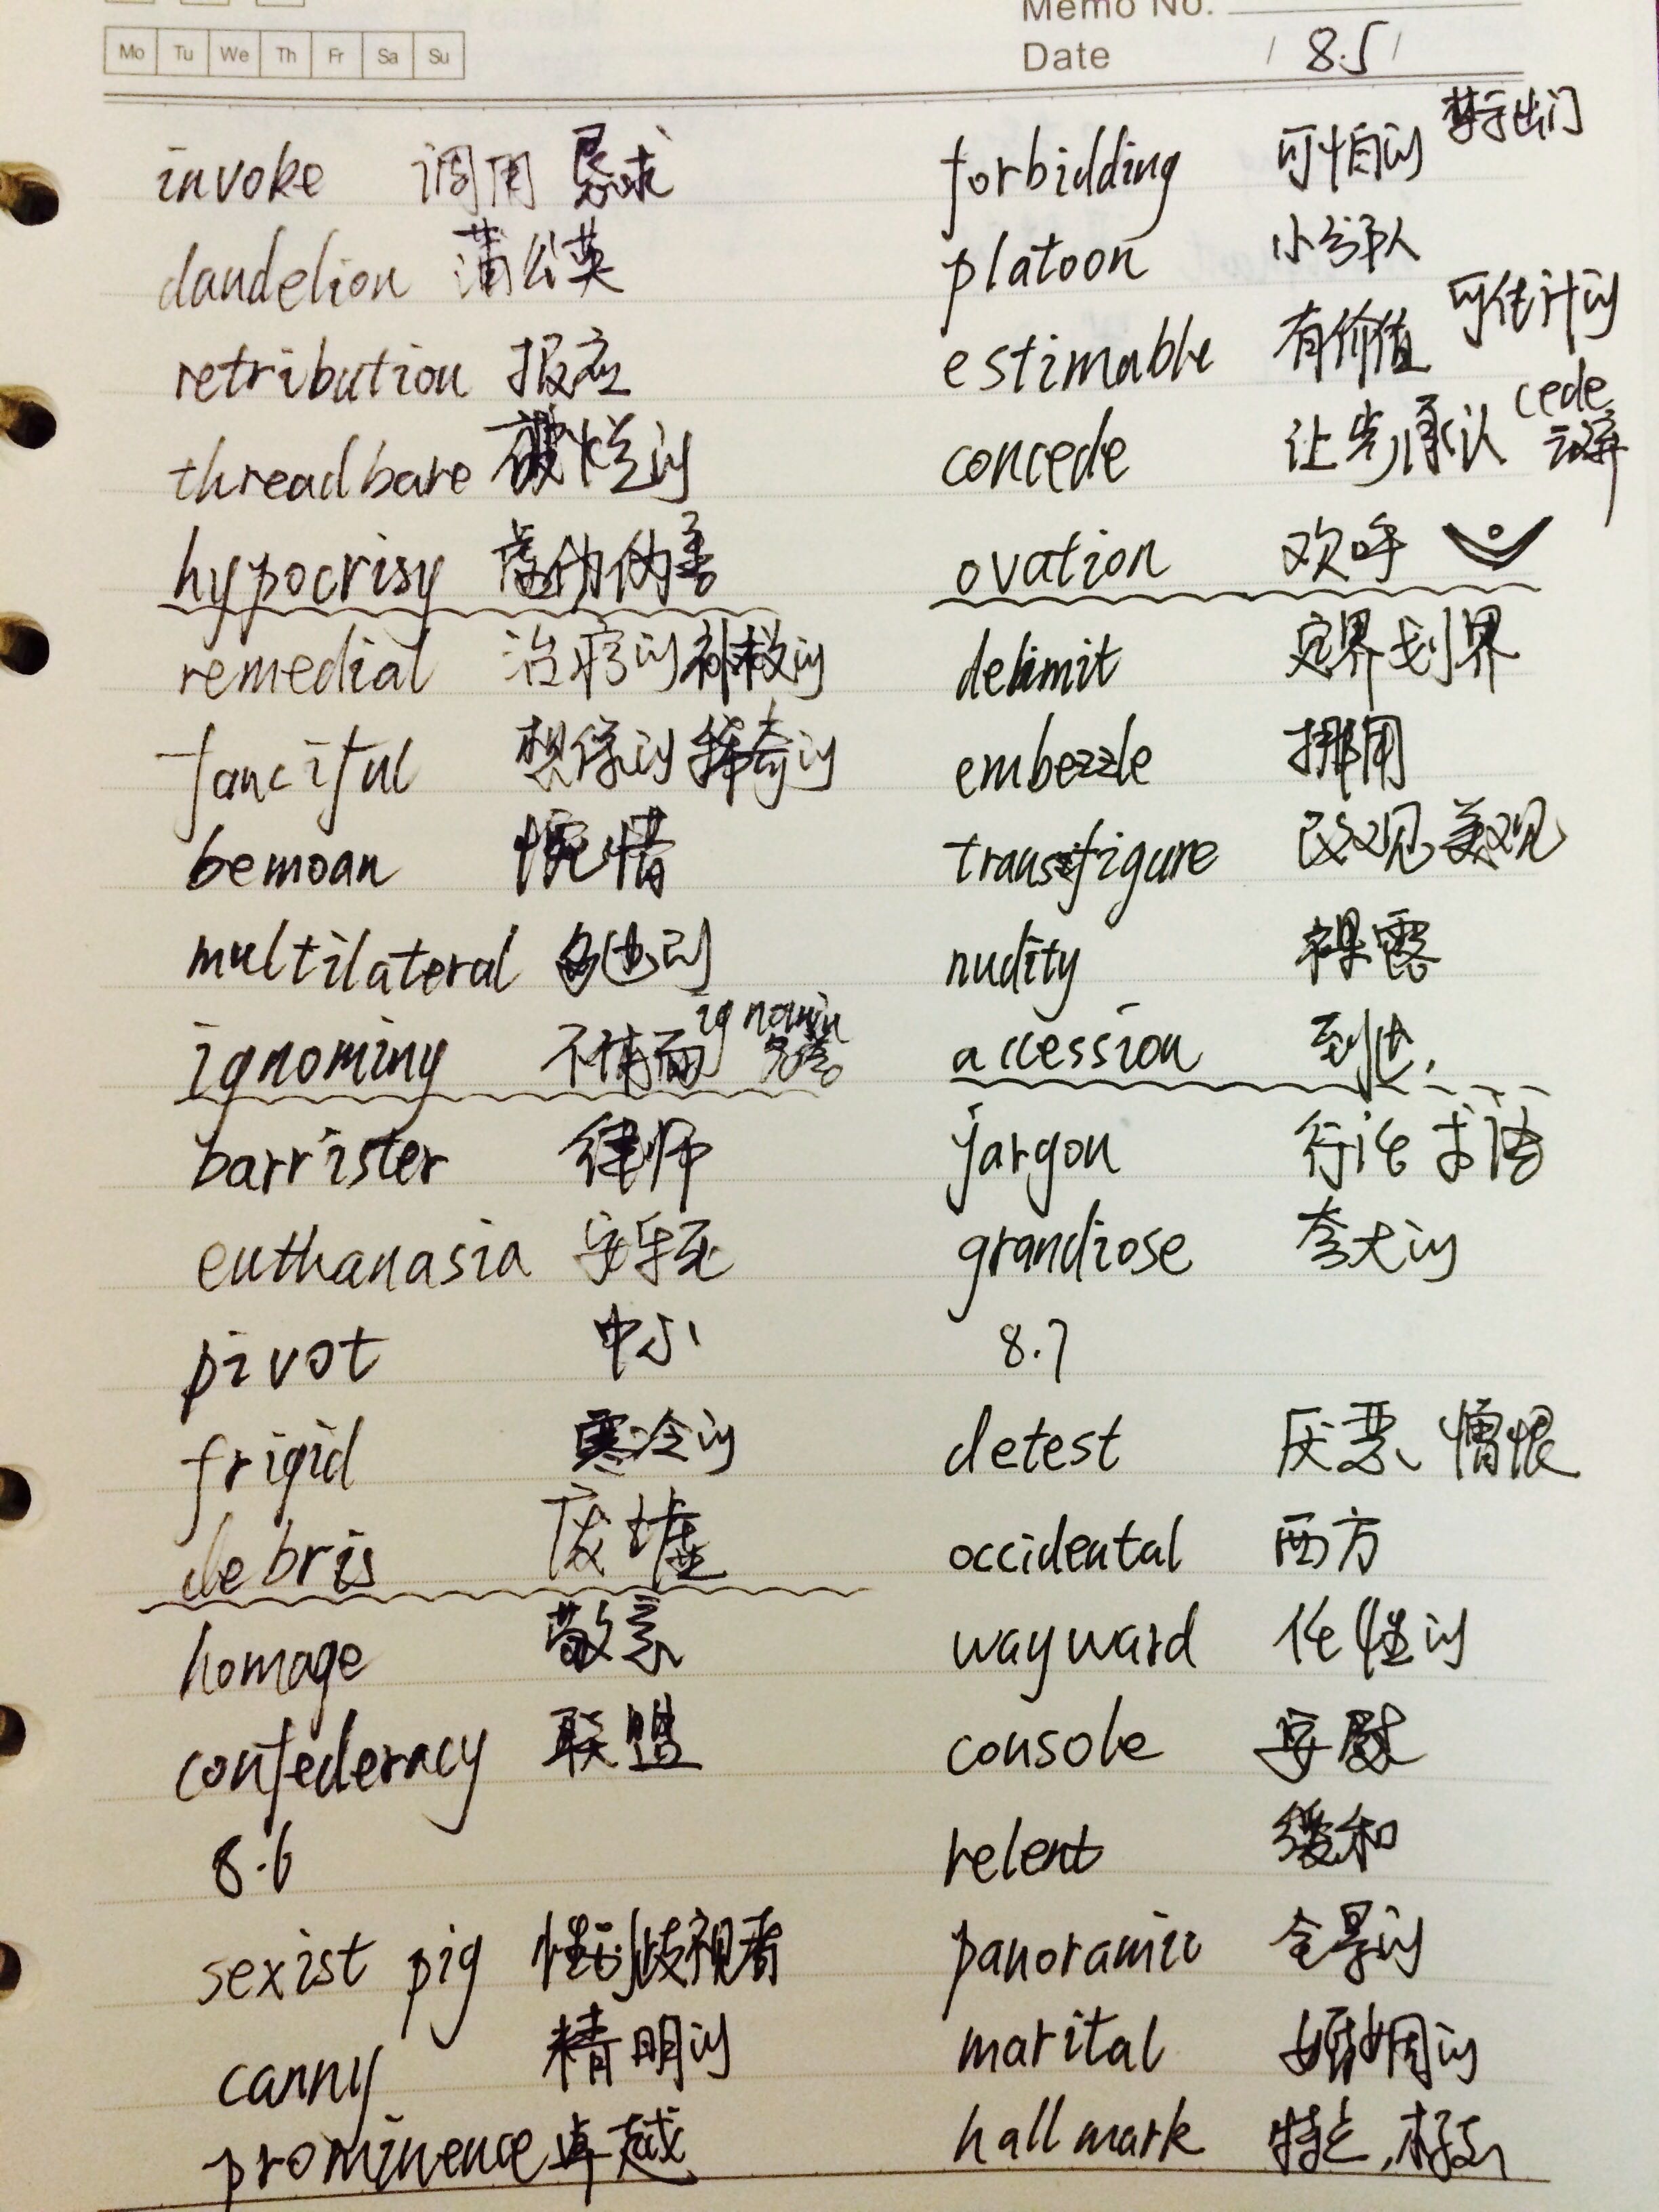 Memo No.
Mo Tu We Th Fr Sa Su
Date / 8.5 /
invoke 调用 恳求
dandelion 蒲公英
retribution 报应
threadbare 破烂的
hypocrisy 虚伪伪善
remedial 治疗的补救的
fanciful 想像的稀奇的
bemoan 惋惜
multilateral 多边的
ignominy 不体面
barrister 律师
euthanasia 安乐死
pivot 中心
frigid 寒冷的
debris 废墟
homage 敬意
confederacy 联盟
8.6
sexist pig 性别歧视者
canny 精明的
prominence 卓越
forbidding 可怕的 禁示出门
platoon 小分队
estimable 有价值 可估计的
concede 让步承认 cede
ovation 欢呼
delimit 定界划界
embezzle 挪用
transfigure 改观 美观
nudity 裸露
accession 到达
jargon 行话 术语
grandiose 夸大的
8.7
detest 厌恶、憎恨
occidental 西方
wayward 任性的
console 安慰
relent 缓和
panoramic 全景的
marital 婚姻的
hallmark 特点,标志